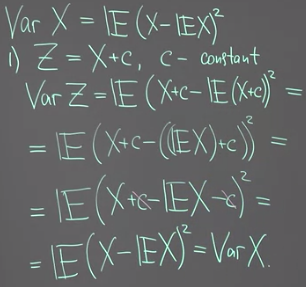 Var X = 𝔼(X-𝔼X)²
1) Z = X+c, c - constant
Var Z = 𝔼(X+c-𝔼(X+c))² =
= 𝔼(X+c-((𝔼X)+c))² =
= 𝔼(X+c-𝔼X-c)² =
= 𝔼(X-𝔼X)² = Var X.